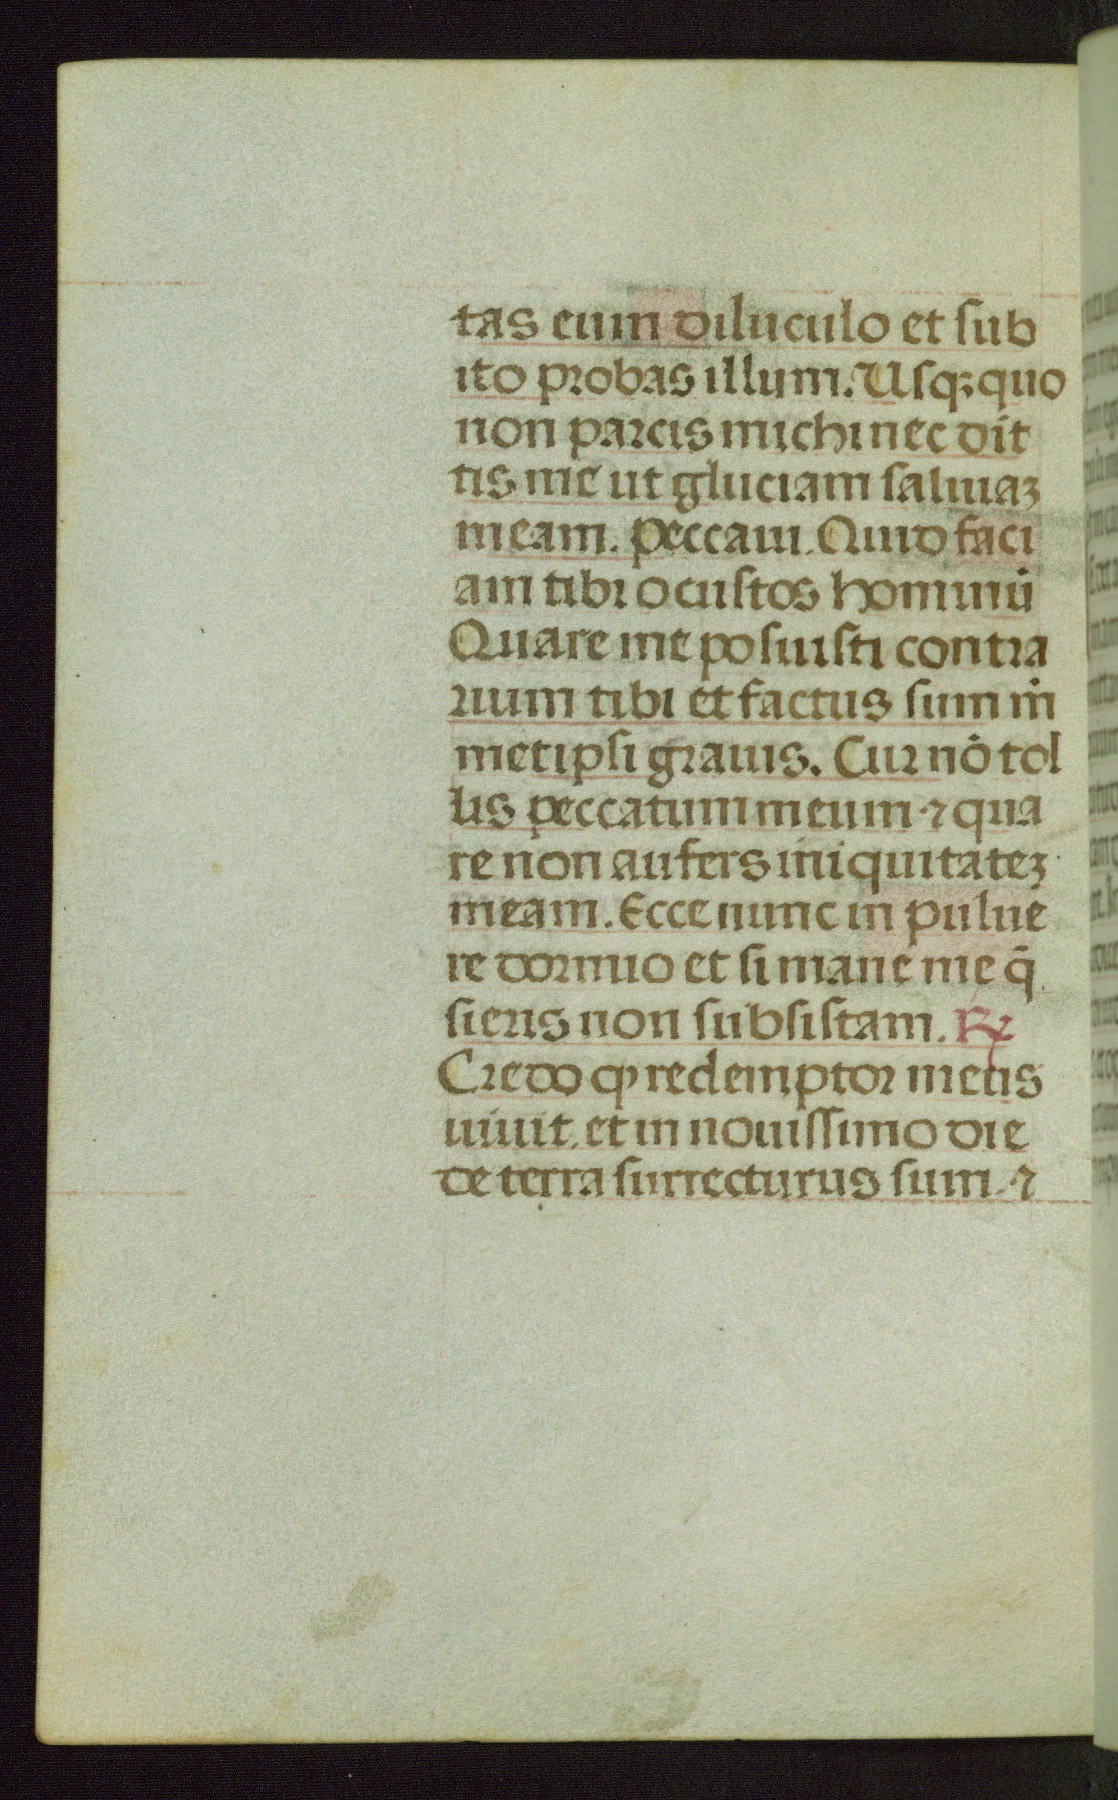 tas eum diluculo et sub
ito probas illum. Usqꝫ quo
non parcis michi nec dit
tis me ut gluciam saliuaꝫ
meam. peccaui. Quid faci
am tibi o custos hominū
Quare me posuisti contra
rium tibi et factus sum m̄
metipsi grauis. Cur nō tol
lis peccatum meum ⁊ qua
re non aufers iniquitateꝫ
meam. Ecce nunc in pulue
re dormio et si mane me q̄
sieris non subsistam. ℞
Credo ꝙ redemptor meus
uiuit. et in nouissimo die
de terra surrecturus sum. ⁊